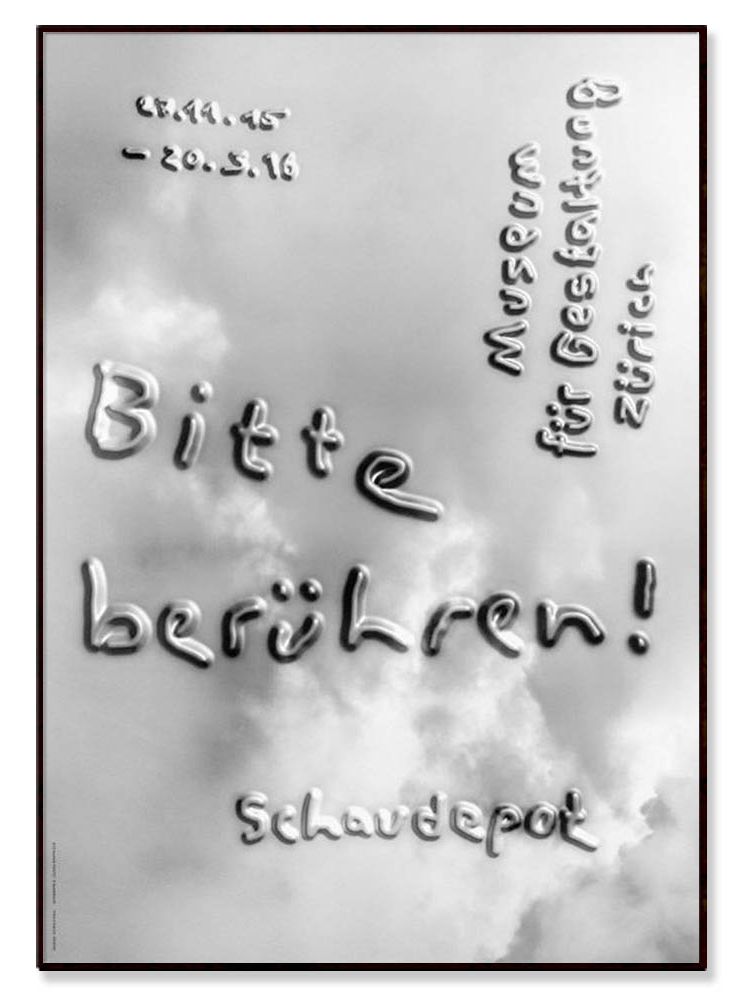 27.11.15
– 20.3.16
Museum
für Gestaltung
Zürich
Bitte
berühren!
Schaudepot